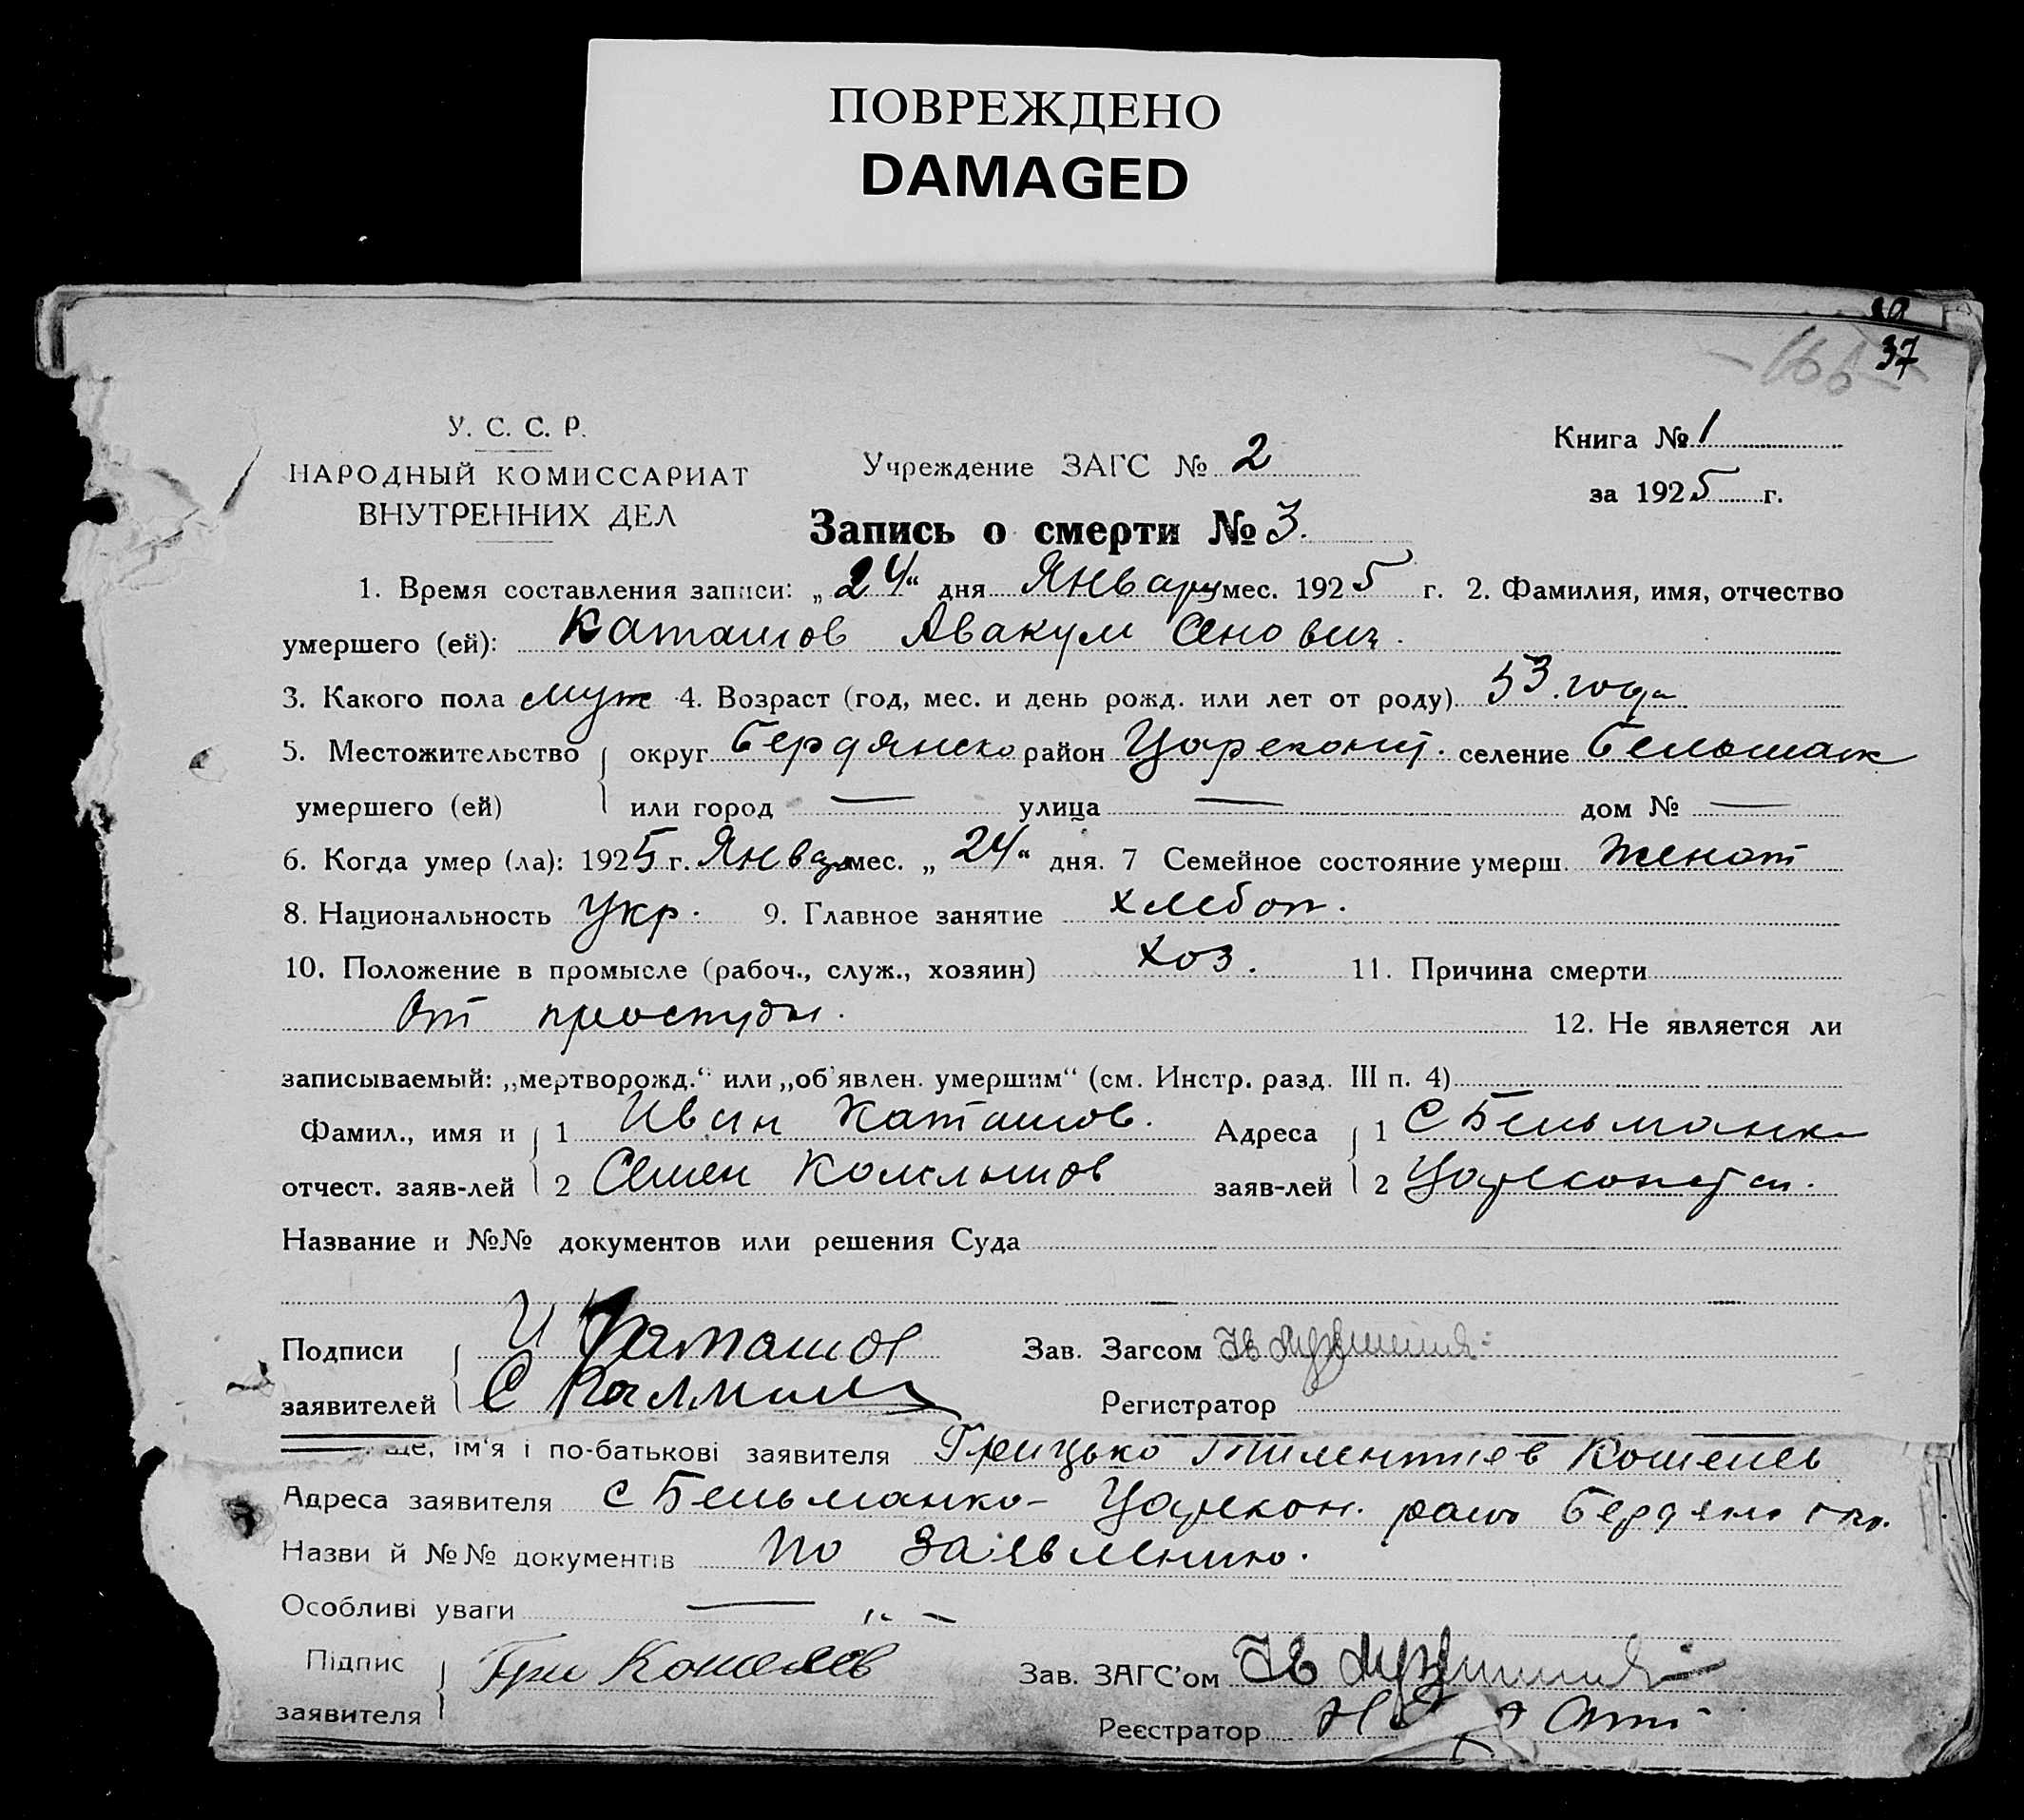 ПОВРЕЖДЕНО
DAMAGED
37
166
У. С. С. Р.
НАРОДНЫЙ КОМИССАРИАТ
ВНУТРЕННИХ ДЕЛ
Учреждение ЗАГС № 2
Книга № 1
за 1925 г.
Запись о смерти № 3.
1. Время составления записи: „24“ дня Января мес. 1925 г. 2. Фамилия, имя, отчество
умершего (ей): Каташов Авакум
3. Какого пола муж 4. Возраст (год, мес. и день рожд. или лет от роду) 53. года
5. Местожительство округ Бердянско район Цареконст. селение Бельманк
умершего (ей) или город — улица — дом № —
6. Когда умер (ла): 1925 г. Января мес. „24“ дня. 7 Семейное состояние умерш. женат
8. Национальность Укр. 9. Главное занятие хлебоп.
10. Положение в промысле (рабоч., служ., хозяин) хоз. 11. Причина смерти
От простуды. 12. Не является ли
записываемый: „мертворожд.“ или „об'явлен. умершим“ (см. Инстр. разд. III п. 4)
Фамил., имя и 1 Иван Каташов. Адреса 1 С Бельманка
отчест. заяв-лей 2 Семен заяв-лей 2
Название и №№ документов или решения Суда
Подписи И Каташов Зав. Загсом
заявителей С Регистратор
ще, ім'я і по-батькові заявителя Грицько Кошелев
Адреса заявителя с Бельманко- Царекон.
Назви й №№ документів по заявлению.
Особливі уваги — „ –
Підпис Гри Кошелев Зав. ЗАГС'ом
заявителя Реєстратор